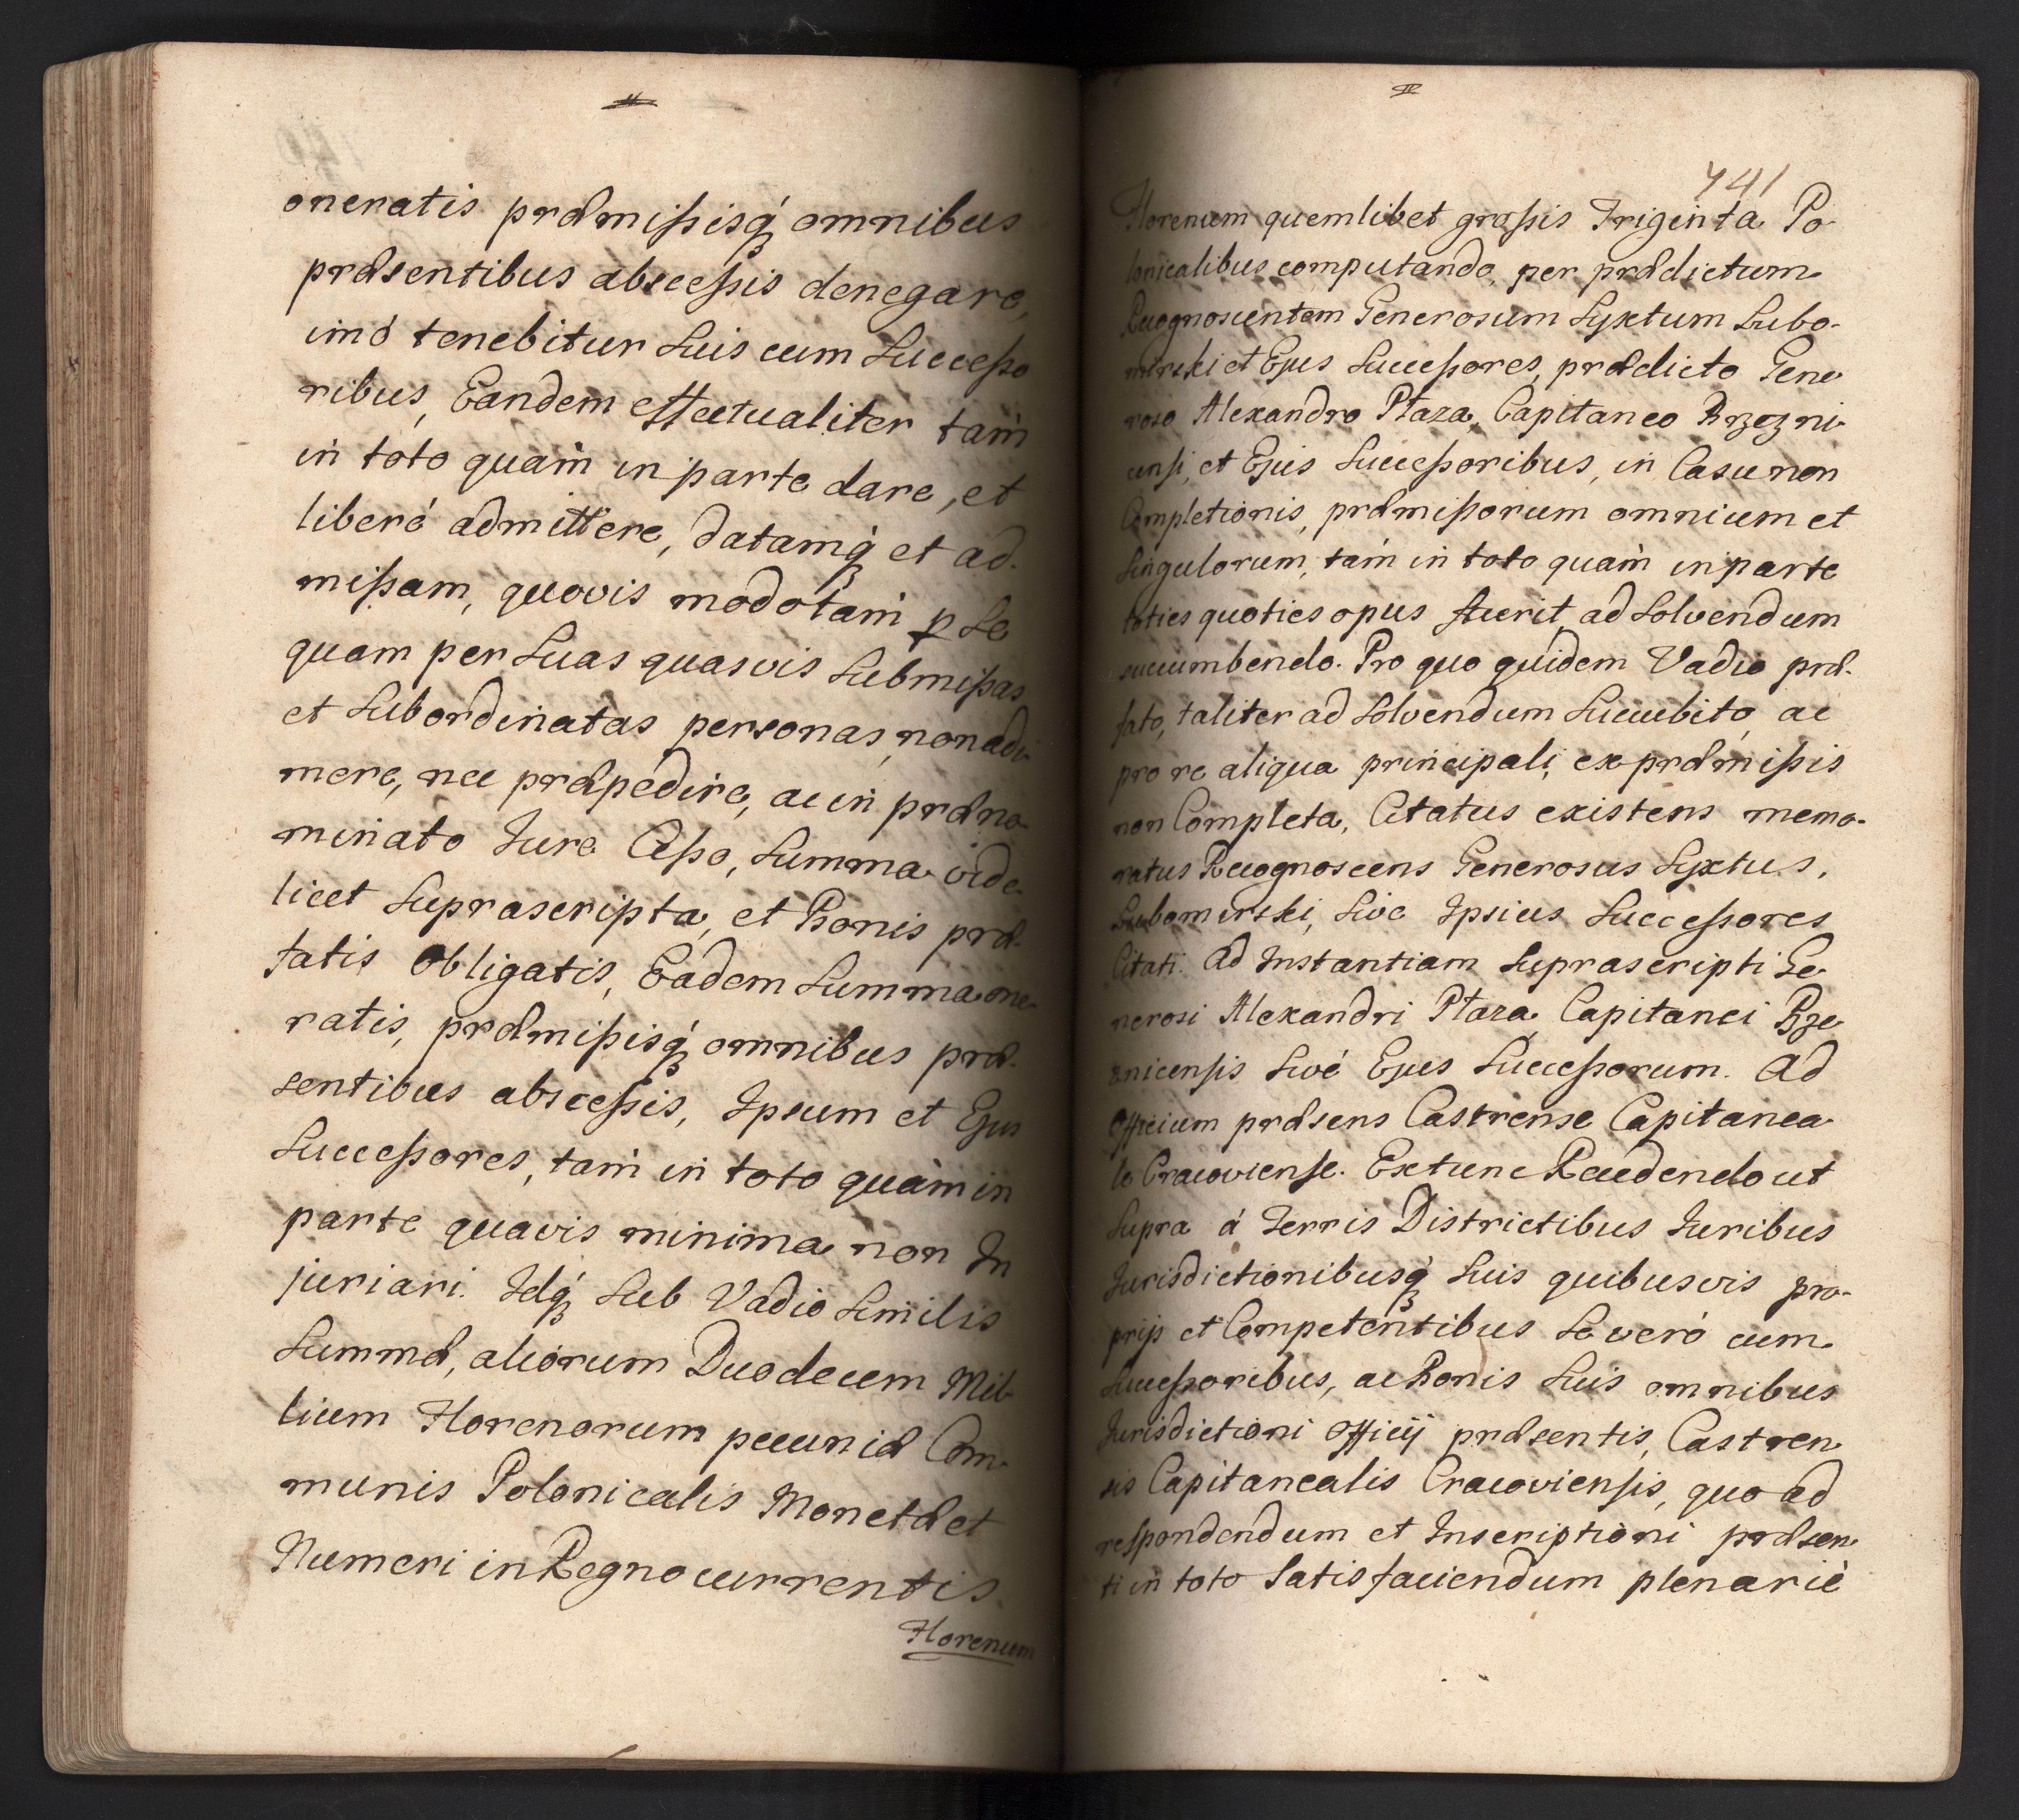 oneratis præmißisq́ꝫ omnibus
præsentibus abscessis denegare,
imó tenebitur Suis cum Succeßo
ribus, Eandem effectualiter tam
in toto quam in parte dare, et
liberé admittere, datamq́ꝫ et ad-
mißam, quovis modo tam p Se
quam per Suas quasvis Submißas
et Subordinatas personas, non adi
mere, nec præpedire, ac in præno
minato Iure Ceßo, Summa vide
licet Suprascripta, et Bonis præ-
fatis obligatis, Eadem Summa one-
ratis, præmißisq́ꝫ omnibus præ-
sentibus abscessis, Ipsum et Ejus
Succeßores, tam in toto quàm in
parte quavis minima non In
juriari. Idq́ꝫ Sub Vadio Similis
Summæ, aliorum Duodecem Mil-
lium Florenorum pecuniæ Com-
munis Polonicalis Monetæ et
Numeri in Regno currentis.
Florenum
741
Florenum quemlibet großis Triginta Po-
lonicalibus computando, per prædictum
Recognoscentem Generosum Syxtum Lubo-
mirski et Ejus Succeßores, prædicto Gene
roso Alexandro Płaza, Capitaneo Brzezni
censi, et Ejus Succeßoribus, in Casu non
Completionis, præmißorum omnium et
Singulorum, tam in toto quam in parte
toties quoties opus fuerit, ad Solvendum
succumbendo. Pro quo quidem Vadio præ-
fato, taliter ad Solvendum Succubito, ac
pro re aliqua principali, ex præmißis
non Completa, Citatus existens memo-
ratus Recognoscens Generosus Syxtus,
Lubomirski, Sive Ipsius Succeßores
Citati. Ad Instantiam Suprascripti Ge
nerosi Alexandri Płaza, Capitanei Brze
znicensis Sivé Ejus Succeßorum. Ad
Officium præsens Castrense Capitanea-
le Cracoviense. Extunc Recedendo ut
Supra á Terris Districtibus Iuribus
Iurisdictionibusq́ꝫ Suis quibusvis pro-
prijs et Competentibus Se veró cum
Succeßoribus, ac Bonis Suis omnibus
Iurisdictioni Officij præsentis, Castren
sis Capitanealis Cracoviensis, quo ad
respondendum et Inscriptioni præsen
ti in toto Satisfaciendum plenariè